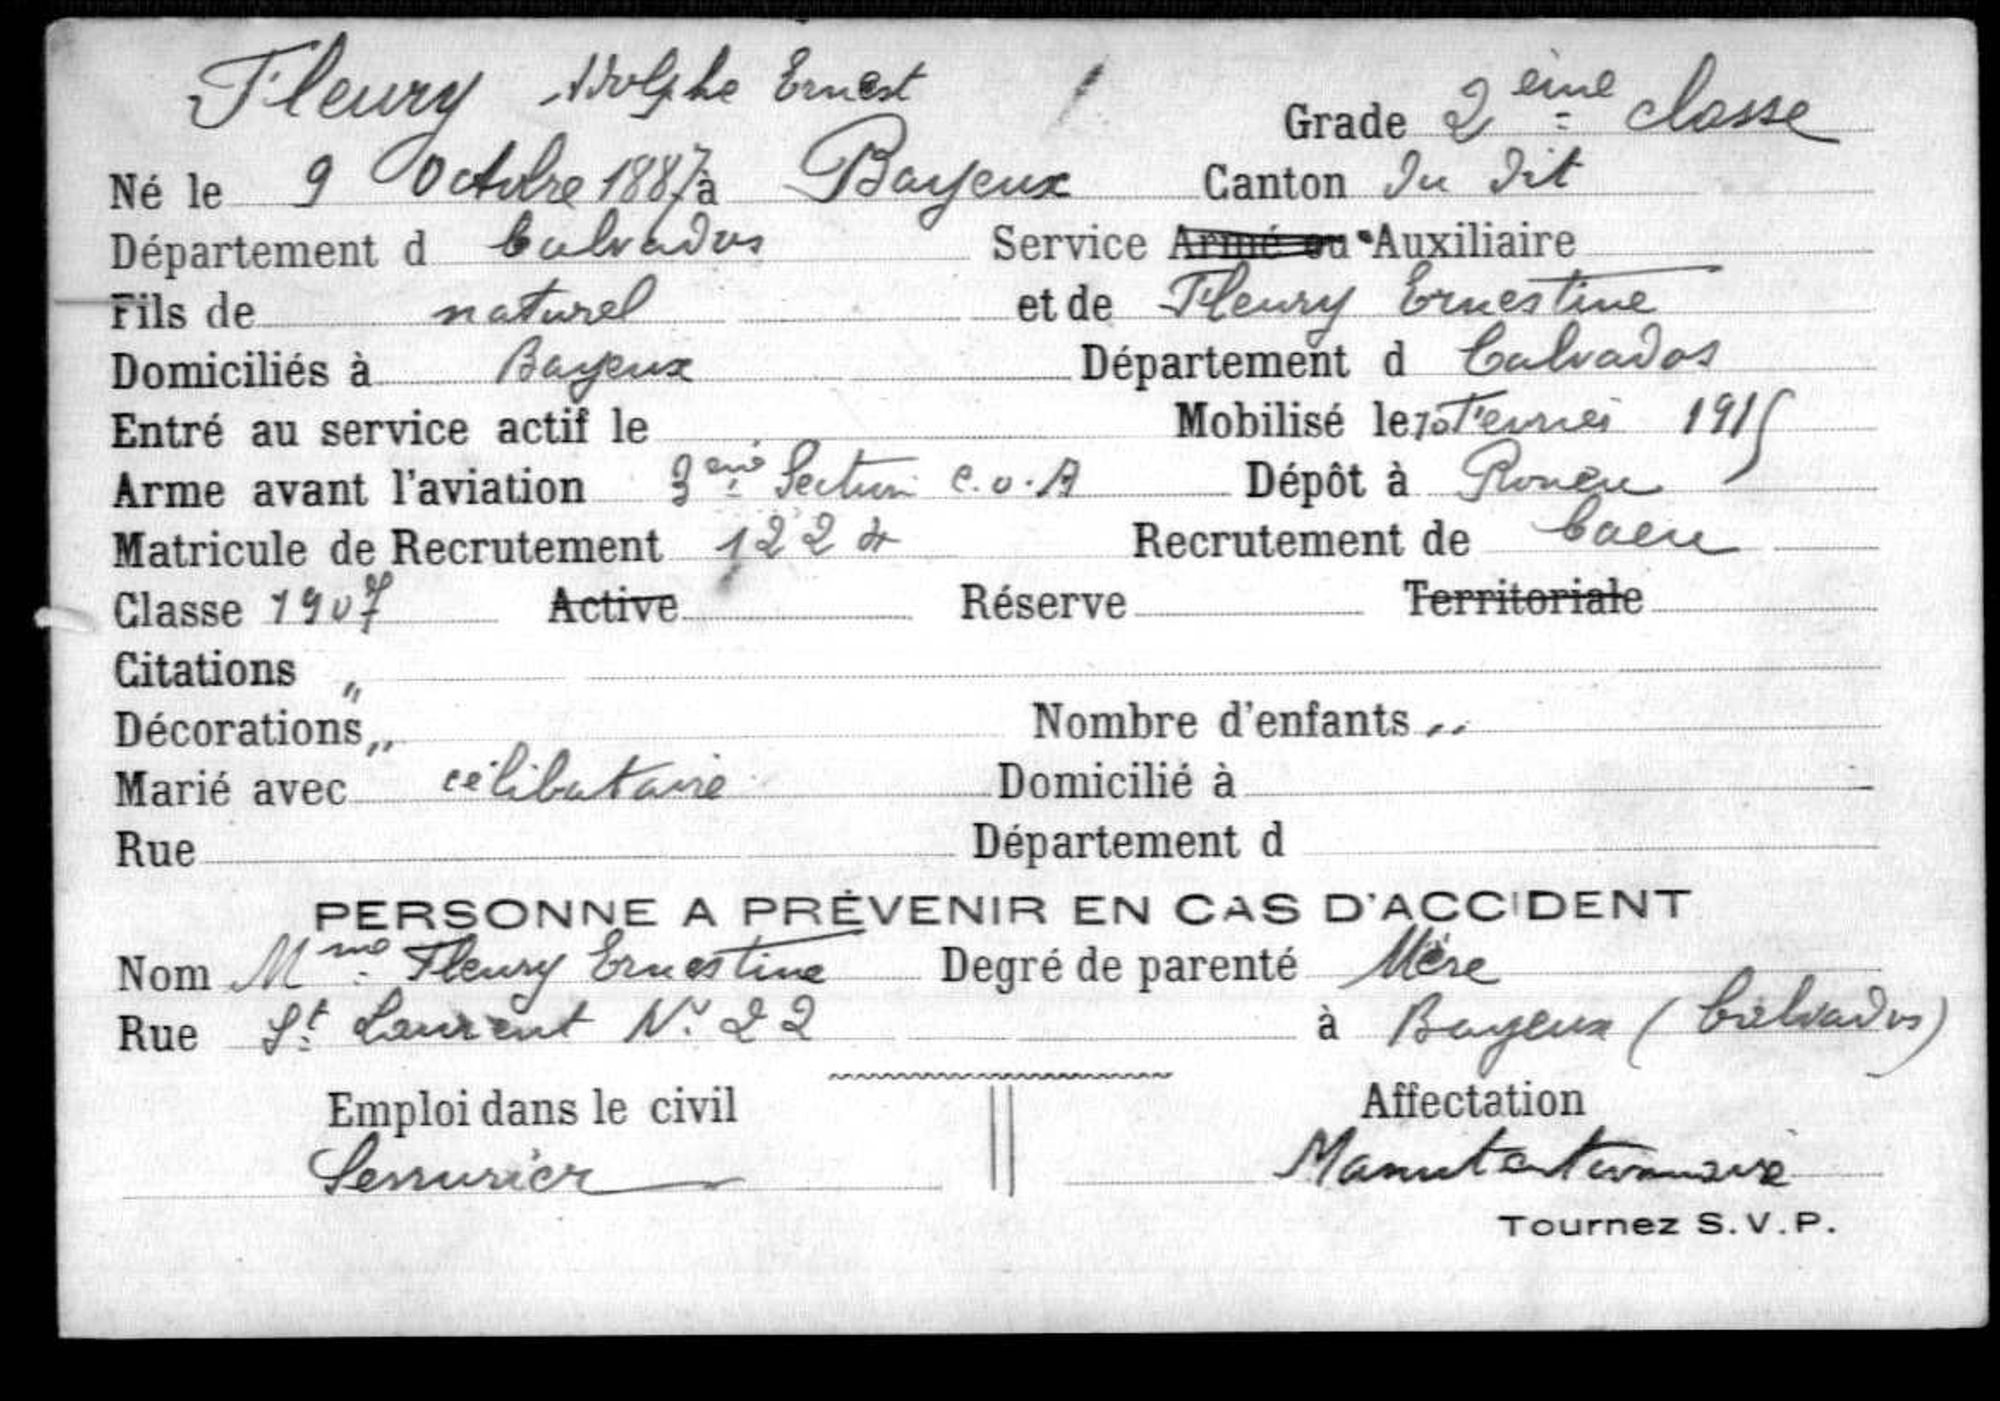 Fleury Adolphe Ernest Grade 2ème classe
Né le 9 Octobre 1887 à Bayeux Canton du dit
Département d Calvados Service Armé ou Auxiliaire
Fils de naturel et de Fleury Ernestine
Domiciliés à Bayeux Département d Calvados
Entré au service actif le Mobilisé le Fevrier 1915
Arme avant l'aviation 3ème Section C.O.A Dépôt à Rouen
Matricule de Recrutement 1224 Recrutement de Caen
Classe 1907 Active Réserve Territoriale
Citations "
Décorations " Nombre d'enfants "
Marié avec célibataire Domicilié à
Rue Département d
PERSONNE A PRÉVENIR EN CAS D'ACCIDENT
Nom Mme Fleury Ernestine Degré de parenté Mère
Rue St Laurent No 22 à Bayeux (Calvados)
Emploi dans le civil Affectation
Serrurier Manutentionnaire
Tournez S.V.P.